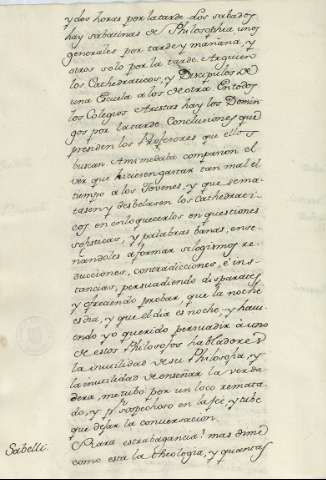 y dos horas por la tarde. Los sabados
hay sabatinas de Philosophia unos
generales por tarde y mañana, y
otros solo por la tarde. Arguien
los Cathedraticos, y Discipulos de
una Escuela a los de otra. En todos
los Colegios Artistas hay los Domin
gos por la tarde Conclusiones que
presiden los Profesores que ellos
buscan. A mi me daba compasion el
ver que hiciesen gastar tan mal el
tiempo a los Jovenes, y que se ma-
tasen y desbelasen los Cathedratri-
cos en enloquecerlos en questiones
sofisticas, y palabras banas, ense-
ñandoles a formar silogismos re-
ducciones, contradicciones, é ins-
tancias, persuadiendo disparates
y ofreciendo probar, que la noche
es dia, y que el dia es noche, y havi-
endo yo querido persuadir à uno
de estos Philosofos habladores
la inutilidad de su Philosofia, y
la inutilidad de enseñar la verda-
dera, me tubo por un loco remata-
do, y por sospechoso en la feé, y tube
que dejar la conversacion.
Sabelli. Rara extrabagancia! mas dime
como esta la theologia, y quantas